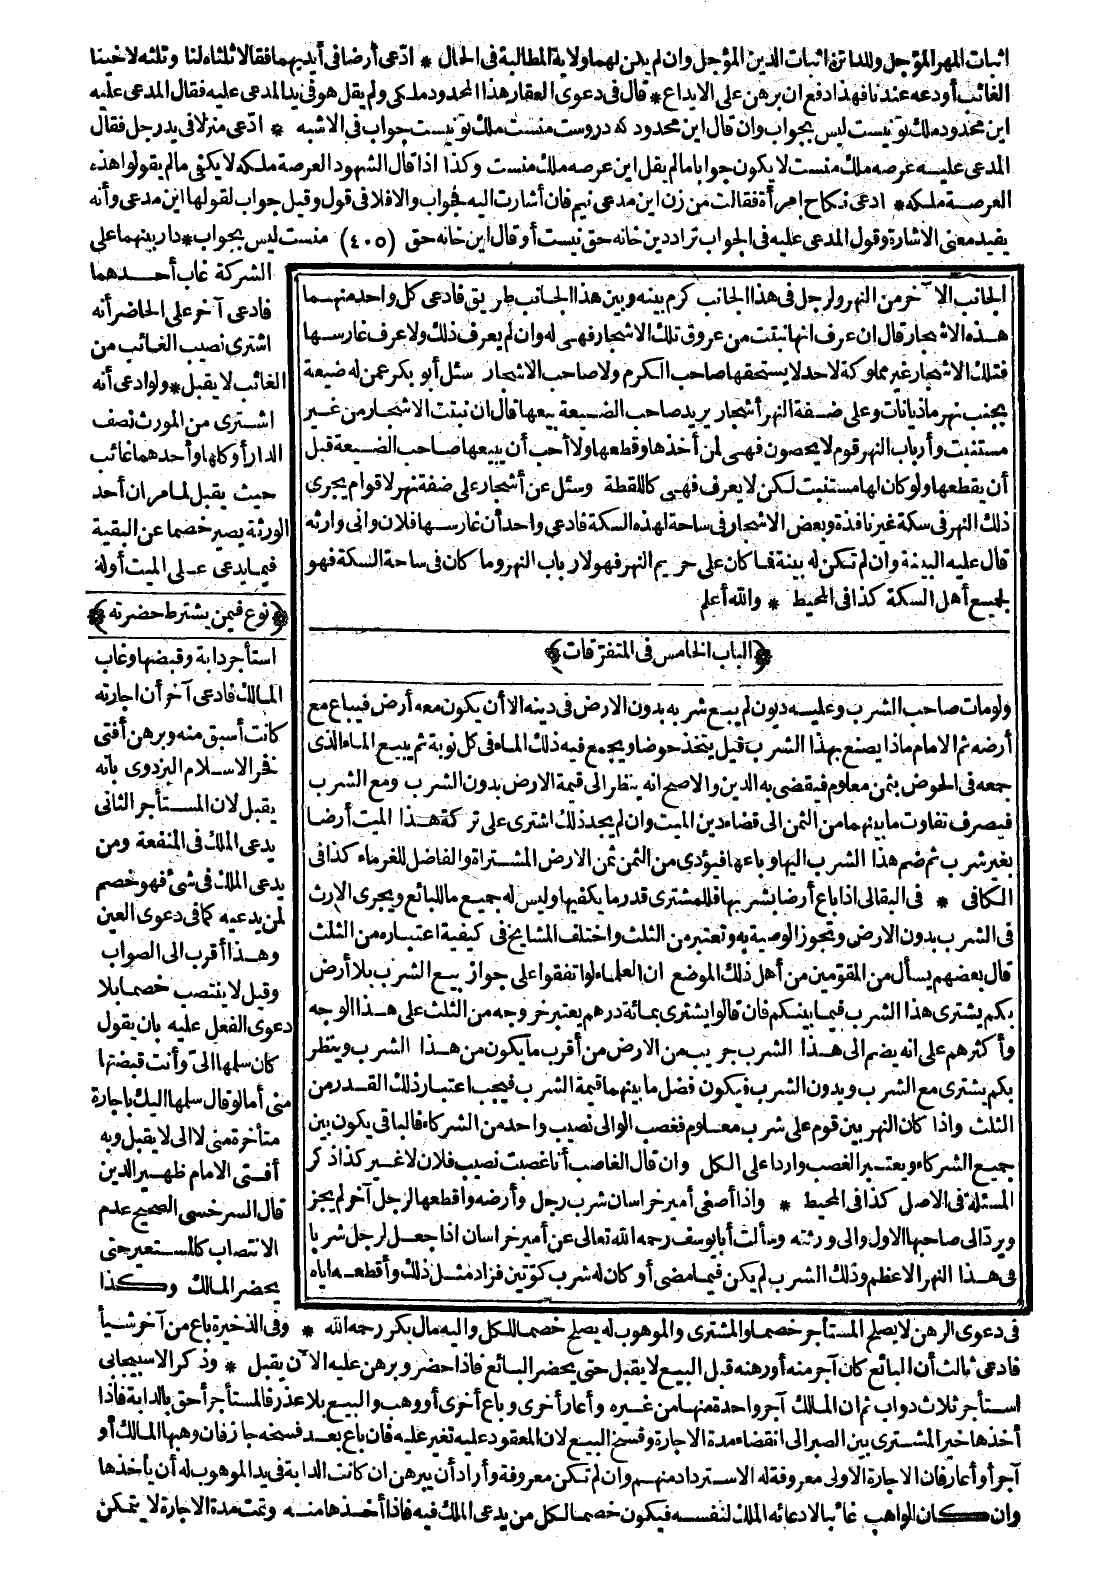 اثبات المهر المؤجل وللدائن اثبات الدين المؤجل وان لم يكن لهما ولاية المطالبة في الحال * ادّعى أرضا في أيديهما فقالا ثلثاه لنا وثلثه لاخينا
الغائب أودعه عندنا فهذا دفع ان برهن على الايداع * قال في دعوى العقار هذا المحدود ملكى ولم يقل هو في يد المدعى عليه فقال المدعى عليه
اين محدود ملك تو نيست ليس بجواب وان قال اين محدود كه دروست منست ملك تو نيست جواب في الاشبه * ادّعى منزلا في يد رجل فقال
المدعى عليه عرصه ملك منست لا يكون جوابا ما لم يقل اين عرصه ملك منست وكذا اذا قال الشهود العرصة ملكه لا يكفى ما لم يقولوا هذه
العرصة ملكه * ادعى نكاح امرأة فقالت من زن اين مدعى نيم فان أشارت اليه فجواب والا فلا في قول وقيل جواب لقولها اين مدعى وأنه
يفيد معنى الاشارة وقول المدعى عليه في الجواب ترا ددين خانه حق نيست أو قال اين خانه حق (٤٠٥) منست ليس بجواب * دار بينهما على
الشركة غاب أحدهما
فادعى آخر على الحاضر أنه
اشترى نصيب الغائب من
الغائب لا يقبل * ولو ادعى أنه
اشترى من المورث نصف
الدار أو كلها وأحدهما غائب
حيث يقبل لما مر ان أحد
الورثة يصير خصما عن البقية
فيما يدعى على الميت أوله
﴿نوع فيمن يشترط حضرته﴾
استأجر دابة وقبضها وغاب
المالك فادعى آخر أن اجارته
كانت أسبق منه وبرهن أفتى
فخر الاسلام البزدوى بأنه
يقبل لان المستأجر الثانى
يدعى الملك في المنفعة ومن
يدعى الملك في شئ فهو خصم
لمن يدعيه كما في دعوى العين
وهذا أقرب الى الصواب
وقيل لا ينتصب خصما بلا
دعوى الفعل عليه بان يقول
كان سلمها الىّ وأنت قبضتها
منى أما لو قال سلمها اليك باجارة
متأخرة منى لا الى لا يقبل وبه
أفتى الامام ظهير الدين
قال السرخسى الصحيح عدم
الانتصاب كالمستعير حتى
يحضر المالك وكذا
الجانب الآخر من النهر ولرجل في هذا الجانب كرم بينه وبين هذا الجانب طريق فادعى كل واحد منهما
هذه الاشجار قال ان عرف انها نبتت من عروق تلك الاشجار فهى له وان لم يعرف ذلك ولا عرف غارسها
فتلك الاشجار غير مملوكة لاحد لا يستحقها صاحب الكرم ولا صاحب الاشجار سئل أبو بكر عمن له ضيعة
بجنب نهر ماذيانات وعلى ضفة النهر أشجار يريد صاحب الضيعة بيعها قال ان نبتت الاشجار من غير
مستنبت وأرباب النهر قوم لا يحصون فهى لمن أخذها وقطعها ولا أحب أن يبيعها صاحب الضيعة قبل
أن يقطعها ولو كان لها مستنبت لكن لا يعرف فهى كاللقطة وسئل عن أشجار على ضفة نهر لاقوام يجرى
ذلك النهر في سكة غير نافذة وبعض الاشجار في ساحة لهذه السكة فادعى واحد أن غارسها فلان وانى وارثه
قال عليه البينة وان لم تكن له بينة فما كان على حريم النهر فهو لارباب النهر وما كان في ساحة السكة فهو
لجميع أهل السكة كذا في المحيط * والله أعلم
﴿الباب الخامس في المتفرّقات﴾
ولو مات صاحب الشرب وعليه ديون لم يبع شربه بدون الارض في دينه الا أن يكون معه أرض فيباع مع
أرضه ثم الامام ماذا يصنع بهذا الشرب قيل يتخذ حوضا ويجمع فيه ذلك الماء في كل نوبة ثم يبيع الماء الذى
جمعه في الحوض بثمن معلوم فيقضى به الدين والاصح انه ينظر الى قيمة الارض بدون الشرب ومع الشرب
فيصرف تفاوت ما بينهما من الثمن الى قضاء دين الميت وان لم يجد ذلك اشترى على تركة هذا الميت أرضا
بغير شرب ثم ضم هذا الشرب اليها وباعها فيؤدى من الثمن ثمن الارض المشتراة والفاضل للغرماء كذا في
الكافى * في البقالى اذا باع أرضا بشربها فللمشترى قدر ما يكفيها وليس له جميع ما للبائع ويجرى الارث
في الشرب بدون الارض وتجوز الوصية به وتعتبر من الثلث واختلف المشايخ في كيفية اعتباره من الثلث
قال بعضهم يسأل من المقوّمين من أهل ذلك الموضع ان العلماء لو اتفقوا على جواز بيع الشرب بلا أرض
بكم يشترى هذا الشرب فيما بينكم فان قالوا يشترى بمائة درهم يعتبر خروجه من الثلث على هذا الوجه
وأكثرهم على انه يضم الى هذا الشرب جريب من الارض من أقرب ما يكون من هذا الشرب وينظر
بكم يشترى مع الشرب وبدون الشرب فيكون فضل ما بينهما قيمة الشرب فيجب اعتبار ذلك القدر من
الثلث واذا كان النهر بين قوم على شرب معلوم فغصب الوالى نصيب واحد من الشركاء فالباقى يكون بين
جميع الشركاء ويعتبر الغصب واردا على الكل وان قال الغاصب أنا غصبت نصيب فلان لا غير كذا ذكر
المسئلة في الاصل كذا في المحيط * واذا أصفى أمير خراسان شرب رجل وأرضه واقطعها لرجل آخر لم يجز
ويردّ الى صاحبها الاول والى ورثته وسألت أبا يوسف رحمه الله تعالى عن أمير خراسان اذا جعل لرجل شربا
في هذا النهر الاعظم وذلك الشرب لم يكن فيما مضى أو كان له شرب كوّتين فزاد مثل ذلك وأقطعه اياه
في دعوى الرهن لا يصلح المستأجر خصما والمشترى والموهوب له يصلح خصما للكل واليه مال بكر رحمه الله * وفى الذخيرة باع من آخر شيأ
فادعى ثالث أن البائع كان آجر منه أو رهنه قبل البيع لا يقبل حتى يحضر البائع فاذا حضر وبرهن عليه الآن يقبل * وذكر الاسبيجابى
استأجر ثلاث دواب ثم ان المالك آجر واحدة منها من غيره وأعار أخرى وباع أخرى أو وهب والبيع بلا عذر فالمستأجر أحق بالدابة فاذا
أخذها خير المشترى بين الصبر الى انقضاء مدة الاجارة وفسخ البيع لان المعقود عليه تغير عليه فان باع بعد فسخه جاز فان وهبها المالك أو
آجر أو أعار فان الاجارة الاولى معروفة له الاسترداد منهم وان لم تكن معروفة وأراد أن يبرهن ان كانت الدابة في يد الموهوب له أن يأخذها
وان كان الواهب غائبا لادعائه الملك لنفسه فيكون خصما لكل من يدعى الملك فيه فاذا أخذها منه وتمت مدة الاجارة لا يتمكن